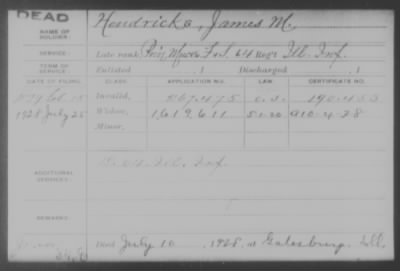 DEAD
NAME OF SOLDIER: Hendricks, James M.
SERVICE: Late rank, Priv, F & S, 64 Reg't Ill. Inf.
TERM OF SERVICE: Enlisted , 1 Discharged , 1
DATE OF FILING. CLASS. APPLICATION NO. LAW. CERTIFICATE NO.
Invalid, 190.453
1928 July 25 Widow, 1619611 910.428
Minor,
ADDITIONAL SERVICES: Ill. Inf.
REMARKS:
Died July 10, 1928, at Galesburg, Ill.